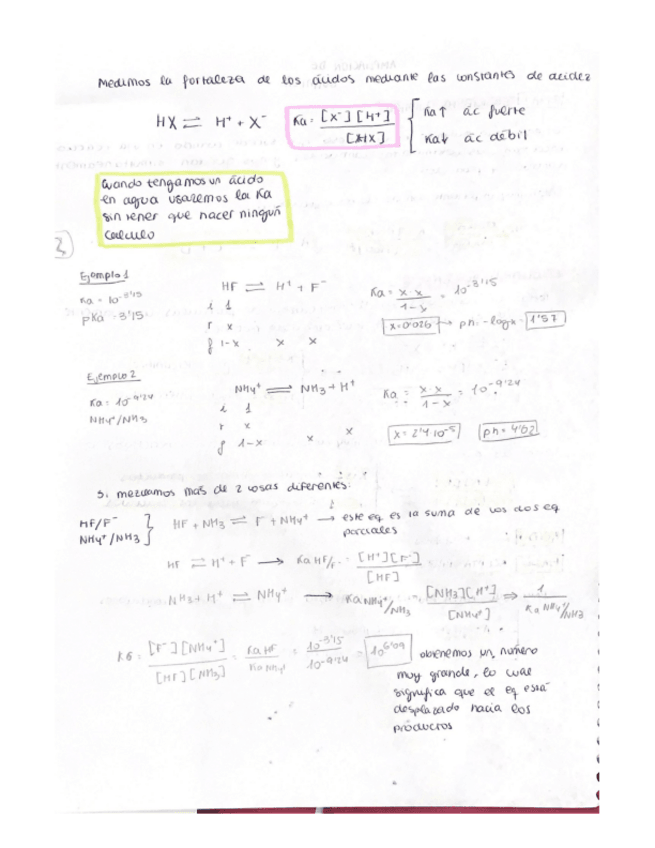 Medimos la fortaleza de los ácidos mediante las constantes de acidez
HX ⇌ H⁺ + X⁻ Ka = [X⁻][H⁺] / [HX] { Ka↑ ác fuerte
Ka↓ ác débil
Cuando tengamos un ácido
en agua usaremos la Ka
sin tener que hacer ningún
calculo
Ejemplo 1
Ka = 10^-3'15
pKa = 3'15
HF ⇌ H⁺ + F⁻
i 1
r x
f 1-x x x
Ka = x·x / 1-x = 10^-3'15
x=0'026 → pH = -logx = 1'57
Ejemplo 2
Ka = 10^-9'24
NH4⁺/NH3
NH4⁺ ⇌ NH3 + H⁺
i 1
r x
f 1-x x x
Ka = x·x / 1-x = 10^-9'24
x = 2'4·10^-5 pH = 4'02
Si mezclamos mas de 2 cosas diferentes:
HF/F⁻
NH4⁺/NH3
HF + NH3 ⇌ F⁻ + NH4⁺ → este eq es la suma de los dos eq
parciales
HF ⇌ H⁺ + F⁻ → Ka HF/F⁻ = [H⁺][F⁻] / [HF]
NH3 + H⁺ ⇌ NH4⁺ → Ka NH4⁺/NH3 = [NH3][H⁺] / [NH4⁺] ⇒ 1 / Ka NH4⁺/NH3
KG = [F⁻][NH4⁺] / [HF][NH3] = Ka HF / Ka NH4⁺ = 10^-3'15 / 10^-9'24 = 10^6'09
obtenemos un número
muy grande, lo cual
significa que el eq está
desplazado hacia los
productos